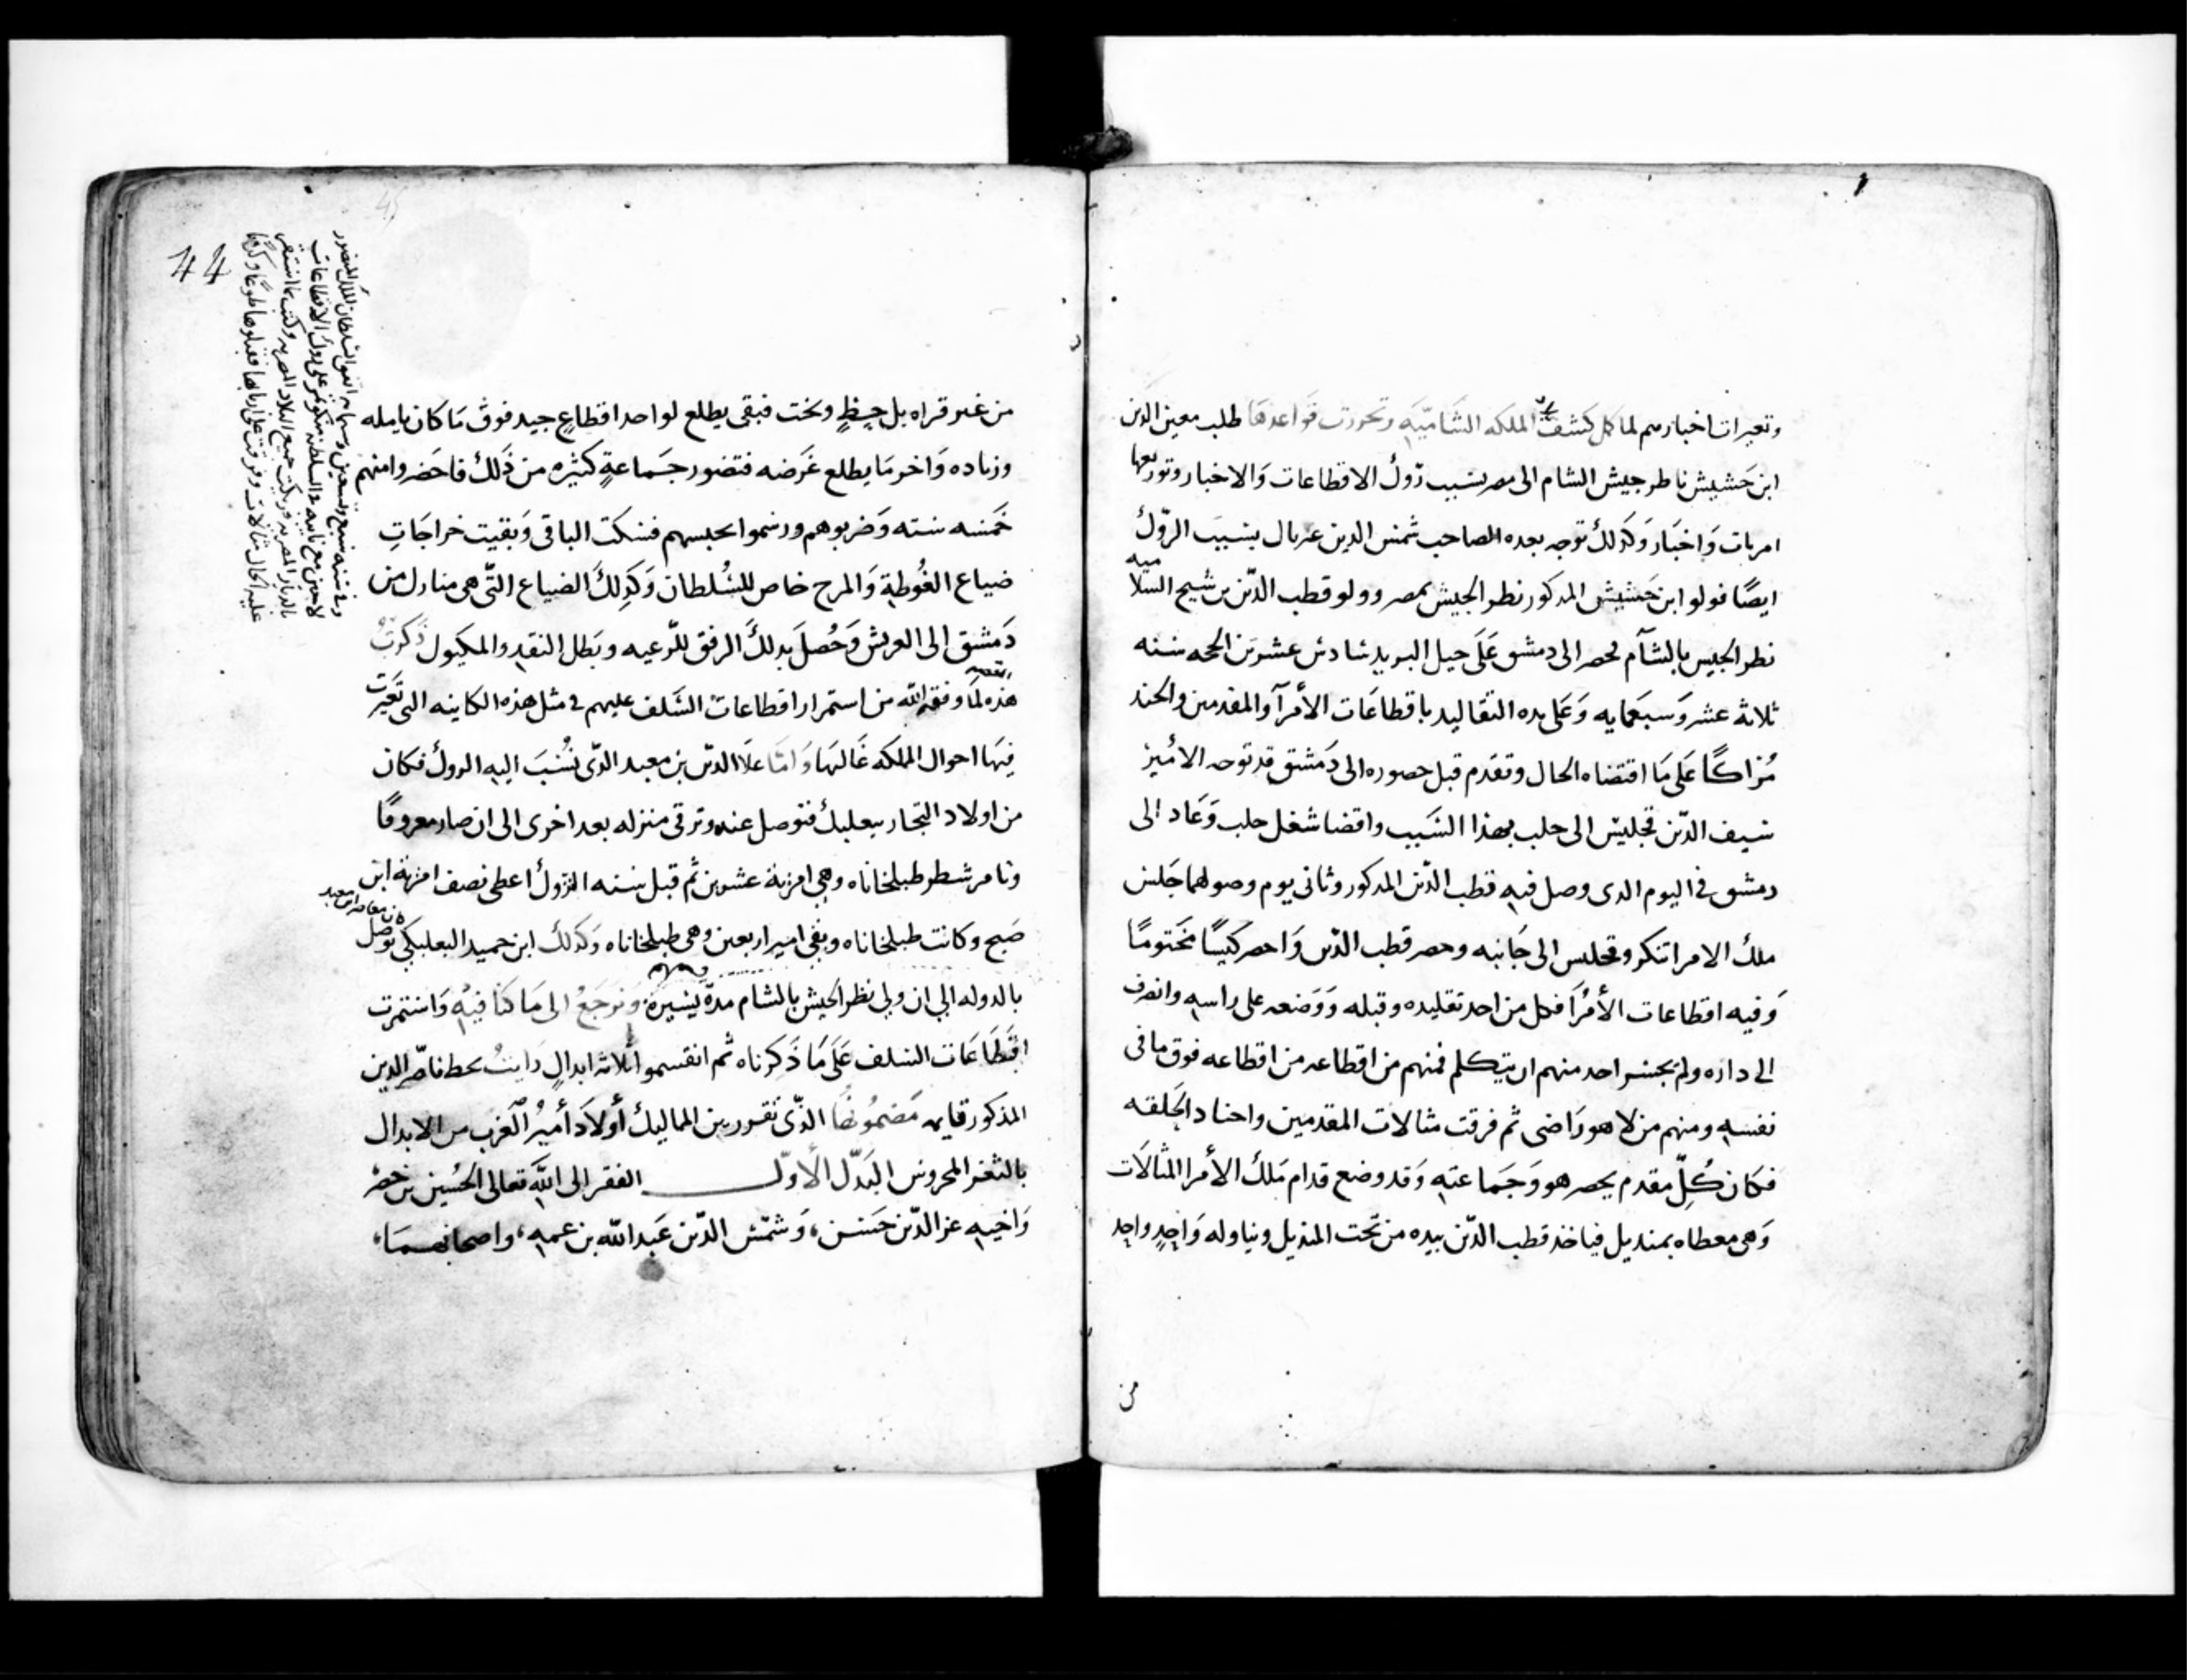 وتعبرات اخبارهم لما كمل كشف المملكه الشاميّه وتحررت قواعدها طلب معين الدين
ابن حشيش ناظر جيش الشام الى مصر بسبب رَوْك الاقطاعات والاخبار وتوزيعها
امريات واخبار وكذلك توجه بعده الصاحب شمس الدين غبريال بسبب الروك
ايضًا فولوا ابن حشيش المذكور نظر الجيش بمصر وولو قطب الدين بن شيخ السلاميه
نظر الجيش بالشام فحضر الى دمشق على خيل البريد سادس عشرين الحجه سنه
ثلاثة عشر وسبعمايه وعلى يده التقاليد باقطاعات الأمرآ والمقدمين والجند
مُزاكًا على ما اقتضاه الحال وتقدم قبل حضوره الى دمشق قد توجه الامير
سيف الدين قجليس الى حلب بهذا السبب واقضا شغل حلب وعاد الى
دمشق في اليوم الدى وصل فيه قطب الدين المذكور وثانى يوم وصولهما جلس
ملك الامرا تنكز وقجليس الى جانبه وحضر قطب الدين واحضر كيسًا مختومًا
وفيه اقطاعات الأمرا فكل من اخد تقليده وقبله ووضعه على راسه وانصرف
الى داره ولم يجسر احد منهم ان يتكلم فمنهم من اقطاعه من اقطاعه فوق ما في
نفسه ومنهم من لا هو راضى ثم فرقت مثالات المقدمين واجناد الحلقه
فكان كُلّ مقدم يحضر هو وجماعته وقد وضع قدام ملك الأمرا المثالات
وهى مغطاه بمنديل فياخذ قطب الدين بيده من تحت المنديل ويناوله واحدٍ واحد
من
44
45
وفى سنه سبع وتسعين وستمايه اتفق السلطان الملك المنصور
لاجين مع نايبه بالسلطنه منكوتمر على روك الاقطاعات
بالديار المصريه فريكت جميع البلاد المصريه وكتب بما استقر
عليه الحال مثالات وفرقت على اربابها فقبلوها طوعًا وكرهًا
من غير قراه بل بحظٍ وبخت فبقى يطلع لواحد اقطاعٍ جيد فوق ما كان يامله
وزياده واخر ما يطلع غرضه فتضور جماعةٍ كثيره من ذلك فاحضروا منهم
خمسه سته وضربوهم ورسموا بحبسهم فسكت الباقى وبقيت خراجاتِ
ضياع الغُوطةِ والمرج خاص للسُلطان وكذلك الضياع التّى هى منازل من
دمشق الى العريش وحُصل بدلك الرفق للرعيه وبطل النقد والمكيول ذكرتُ
هذه القصه لما وفقه الله من استمرار اقطاعات السَلف عليهم فى مثل هذه الكاينه التى تغيرت
فيها احوال المملكه غالبها وامّا علا الدين بن معبد الذى نُسب اليه الروك فكان
من اولاد التجار ببعلبك فتوصل عنده وترقى منزله بعد اخرى الى ان صار معروفًا
وتامر شطر طبلخاناه وهي امرية عشرين ثم قبل سنه الروك اعطى نصف امرية ابن
صبح وكانت طبلخاناه وبقى امير اربعين وهى طبلخاناه وكذلك ابن حميد البعلبكي توصل
كان معاصر ابن معبد
بالدوله الي ان ولي نظر الجيش بالشام مدةً يسيرة ونرجعُ الى ما كنا فيه واستمرت
اقطاعات السلف على ما ذكرناه ثم انقسموا ثلاثه ابدالٍ رايتُ بخط ناصر الدين
المذكور قايمه مضمونُها الذّى تقرر بين المماليك أولاد أميرُ الغرب من الابدال
بالثغر المحروس البدّل الأوّل الفقير الى الله تعالى الحُسين بن خضر
واخيه عز الدّين حسن، وشمسُ الدّين عبد الله بن عمه، واصحابهما،